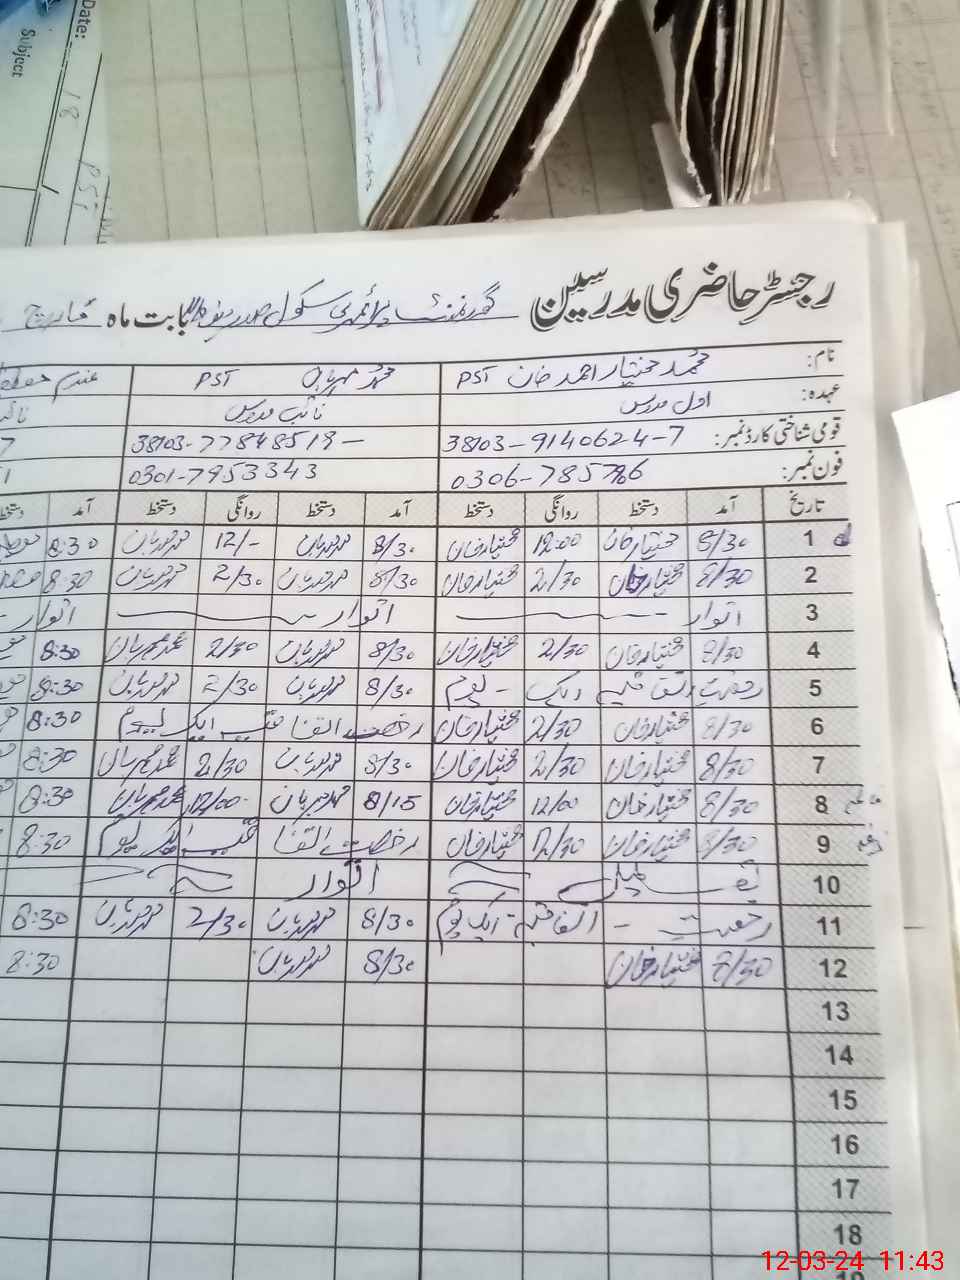 Date:
Subject
18
PST
رجسٹر حاضری مدرسین گورنمنٹ پرائمری سکول بابت ماہ مارچ
نام: محمد مختیار احمد خان PST محمد مہربان PST
عہدہ: اول مدرس نائب مدرس
قومی شناختی کارڈ نمبر: 38103-9140624-7 38103-7784851
فون نمبر: 0306-785 0301-7953343
تاریخ آمد دستخط روانگی دستخط آمد دستخط روانگی دستخط آمد
1 8/30 مختیار خان 12:00 مختیار خان 8/30 مہربان 12/- مہربان 8:30
2 8/30 مختیار خان 2/30 مختیار خان 8/30 مہربان 2/30 مہربان 8:30
3 اتوار اتوار اتوار
4 8/30 مختیار خان 2/30 مختیار خان 8/30 مہربان 2/30 محمد مہربان 8:30
5 رخصت اتفاقیہ ایک یوم 8/30 مہربان 2/30 مہربان 8:30
6 8/30 مختیار خان 2/30 مختیار خان رخصت اتفاقیہ ایک یوم 8:30
7 8/30 مختیار خان 2/30 مختیار خان 8/30 مہربان 2/30 محمد مہربان 8:30
8 8/30 مختیار خان 12/00 مختیار خان 8/15 مہربان 12/00 محمد مہربان 8:30
9 8/30 مختیار خان 12/30 مختیار خان رخصت اتفاقیہ ایک یوم 8:30
10 تعطیل اتوار
11 رخصت اتفاقیہ ایک یوم 8/30 مہربان 2/30 مہربان 8:30
12 8/30 مختیار خان 8/30 مہربان 8:30
13
14
15
16
17
18
12-03-24 11:43